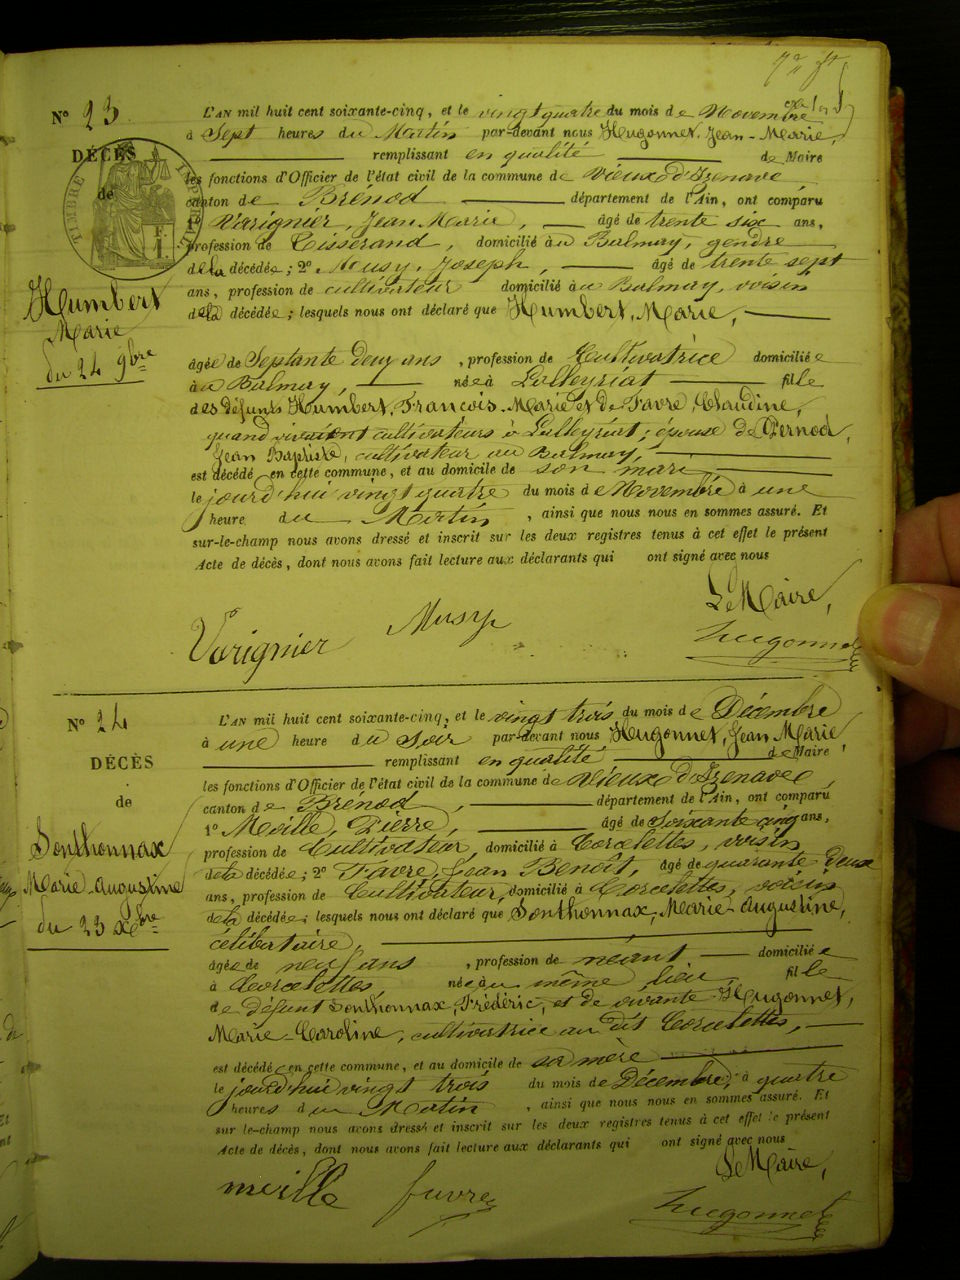 N° 23
DÉCÈS
de
TIMBRE IMPÉRIAL
F.
1
Humbert
Marie
du 24 9bre
L'AN mil huit cent soixante-cinq, et le vingt quatre du mois de Novembre
à Sept heures du Matin par-devant nous Hugonnet, Jean-Marie,
remplissant en qualité de Maire
les fonctions d'Officier de l'état civil de la commune de Vieux d'Izenave
canton de Brénod département de l'Ain, ont comparu
1° Varignier, Jean Marie, âgé de trente six ans,
profession de Tisserand, domicilié au Balmay, gendre
de la décédée; 2° Musy, Joseph, âgé de trente sept
ans, profession de cultivateur domicilié au Balmay, voisin
de la décédée; lesquels nous ont déclaré que Humbert, Marie,
âgée de Septante deux ans, profession de Cultivatrice domiciliée
au Balmay, née à Lalleyriat fille
des défunts Humbert, François-Marie et de Favre, Claudine,
quand vivaient cultivateurs à Lalleyriat; épouse de Pernod,
Jean Baptiste, cultivateur au Balmay,
est décédé en cette commune, et au domicile de son mari
le jourd'hui vingt quatre du mois de Novembre à une
heure du Matin, ainsi que nous nous en sommes assuré. Et
sur-le-champ nous avons dressé et inscrit sur les deux registres tenus à cet effet le présent
Acte de décès, dont nous avons fait lecture aux déclarants qui ont signé avec nous
Le Maire,
Varignier Musy Hugonnet
N° 24
DÉCÈS
de
Sonthonnax
Marie-Augustine
du 23 Xbre
L'AN mil huit cent soixante-cinq, et le vingt trois du mois de Décembre
à une heure du Soir par-devant nous Hugonnet, Jean Marie
remplissant en qualité de Maire,
les fonctions d'Officier de l'état civil de la commune de Vieux d'Izenave,
canton de Brénod, département de l'Ain, ont comparu
1° Meille, Pierre, âgé de Soixante cinq ans,
profession de Cultivateur, domicilié à Corcelettes, voisin
de la décédée; 2° Favre, Jean Benoît, âgé de quarante deux
ans, profession de Cultivateur, domicilié à Corcelettes, voisin
de la décédée; lesquels nous ont déclaré que Sonthonnax, Marie-Augustine,
célibataire,
âgée de neuf ans, profession de néant domiciliée
à Corcelettes, née au même lieu fille
de défunt Sonthonnax, Frédéric, et de vivante Hugonnet,
Marie-Caroline, cultivatrice au dit Corcelettes,
est décédé en cette commune, et au domicile de sa mère
le jourd'hui vingt trois du mois de Décembre, à quatre
heures du Matin, ainsi que nous nous en sommes assuré. Et
sur-le-champ nous avons dressé et inscrit sur les deux registres tenus à cet effet le présent
Acte de décès, dont nous avons fait lecture aux déclarants qui ont signé avec nous
Le Maire,
meille favre Hugonnet